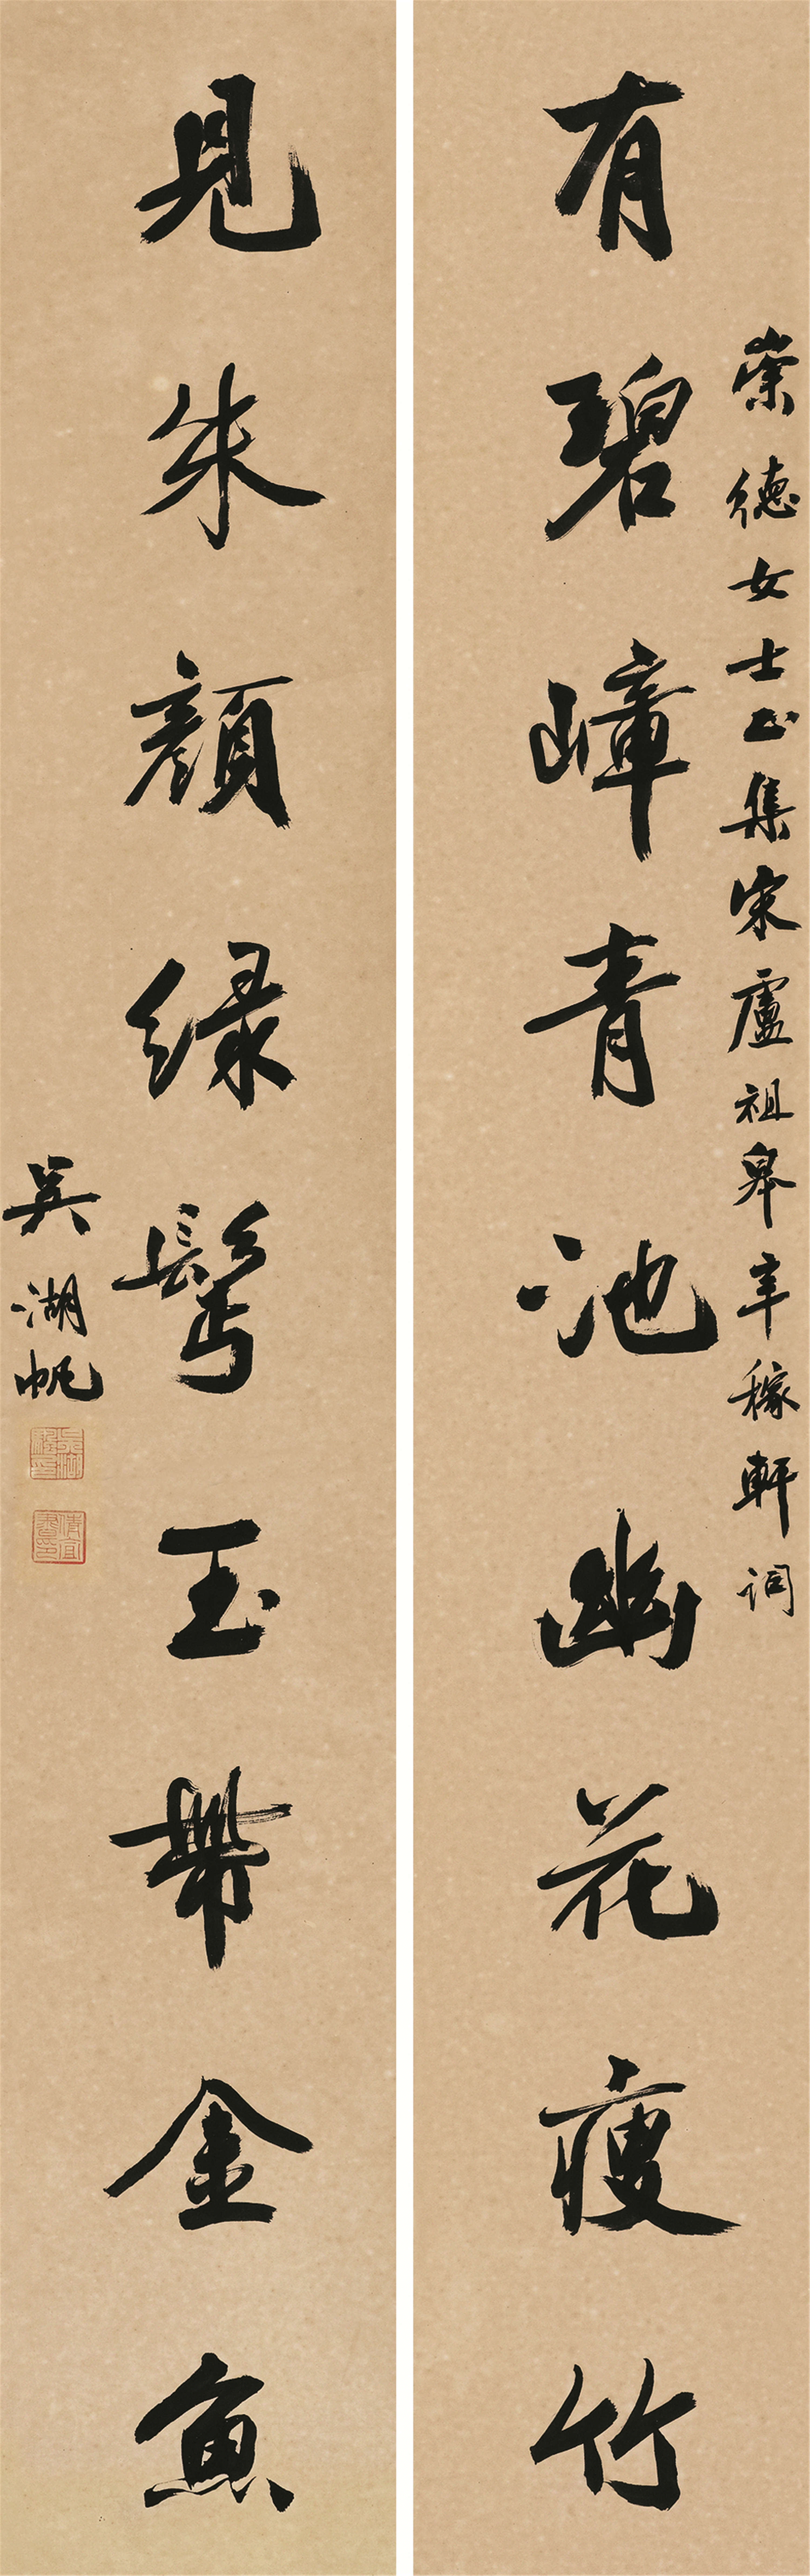 崇德女士正集宋盧祖皋辛稼軒詞
有碧嶂青池幽花瘦竹
見朱顏绿鬢玉帶金魚
吴湖帆
吴湖颿印